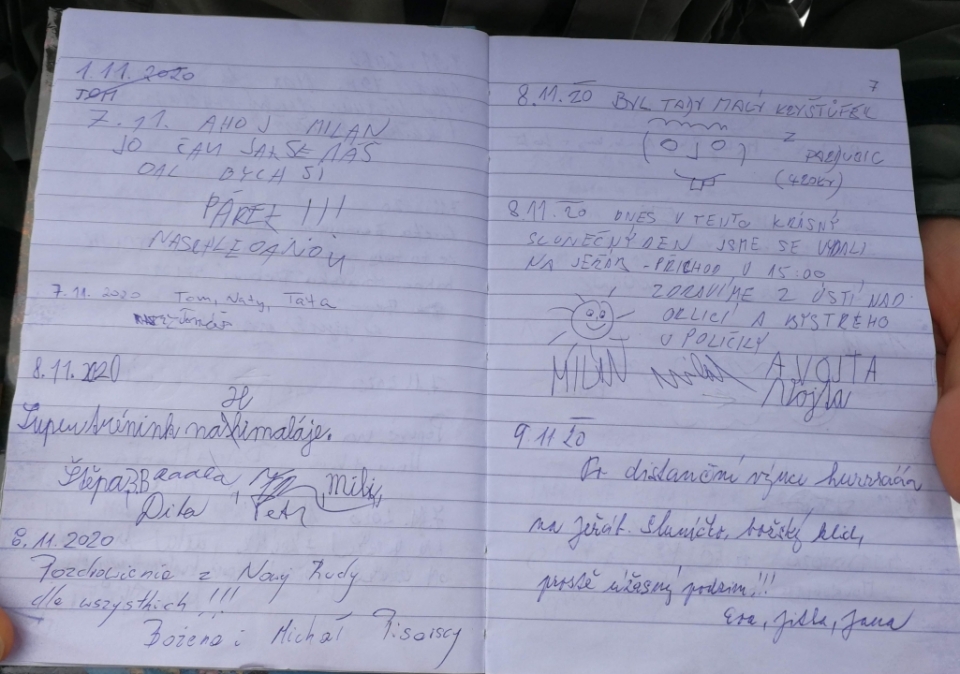 1.11.2020
TOM
7.11. AHOJ MILAN
JO ČAU JAK SE MÁŠ
DAL BYCH SI
PÁREK !!!
NASHLEDANOU
7.11.2020 Tom, Naty, Táta
Tomáš
8.11.2020
H
Super trénink na himaláje.
Štěpa, Radka, Mili,
Dita, Petr
8.11.2020
Pozdrowienia z Nowej Rudy
dla wszystkich !!!
Bożena i Michał
7
8.11.20 BYL TADY MALÝ KRYŠTŮFEK
Z
PARDUBIC
8.11.20 DNES V TENTO KRÁSNÝ
SLUNEČNÝ DEN JSME SE VYDALI
NA JEŘÁB - PŘÍCHOD V 15:00
ZDRAVÍME Z ÚSTÍ NAD
ORLICÍ A BYSTRÉHO
U POLIČKY
MILAN Milan A VOJTA
Vojta
9 11 20
Po distanční výuce hurááá
na Jeřáb. Sluníčko, božský klid,
prostě úžasný podzim!!!
Eva, Jitka, Jana